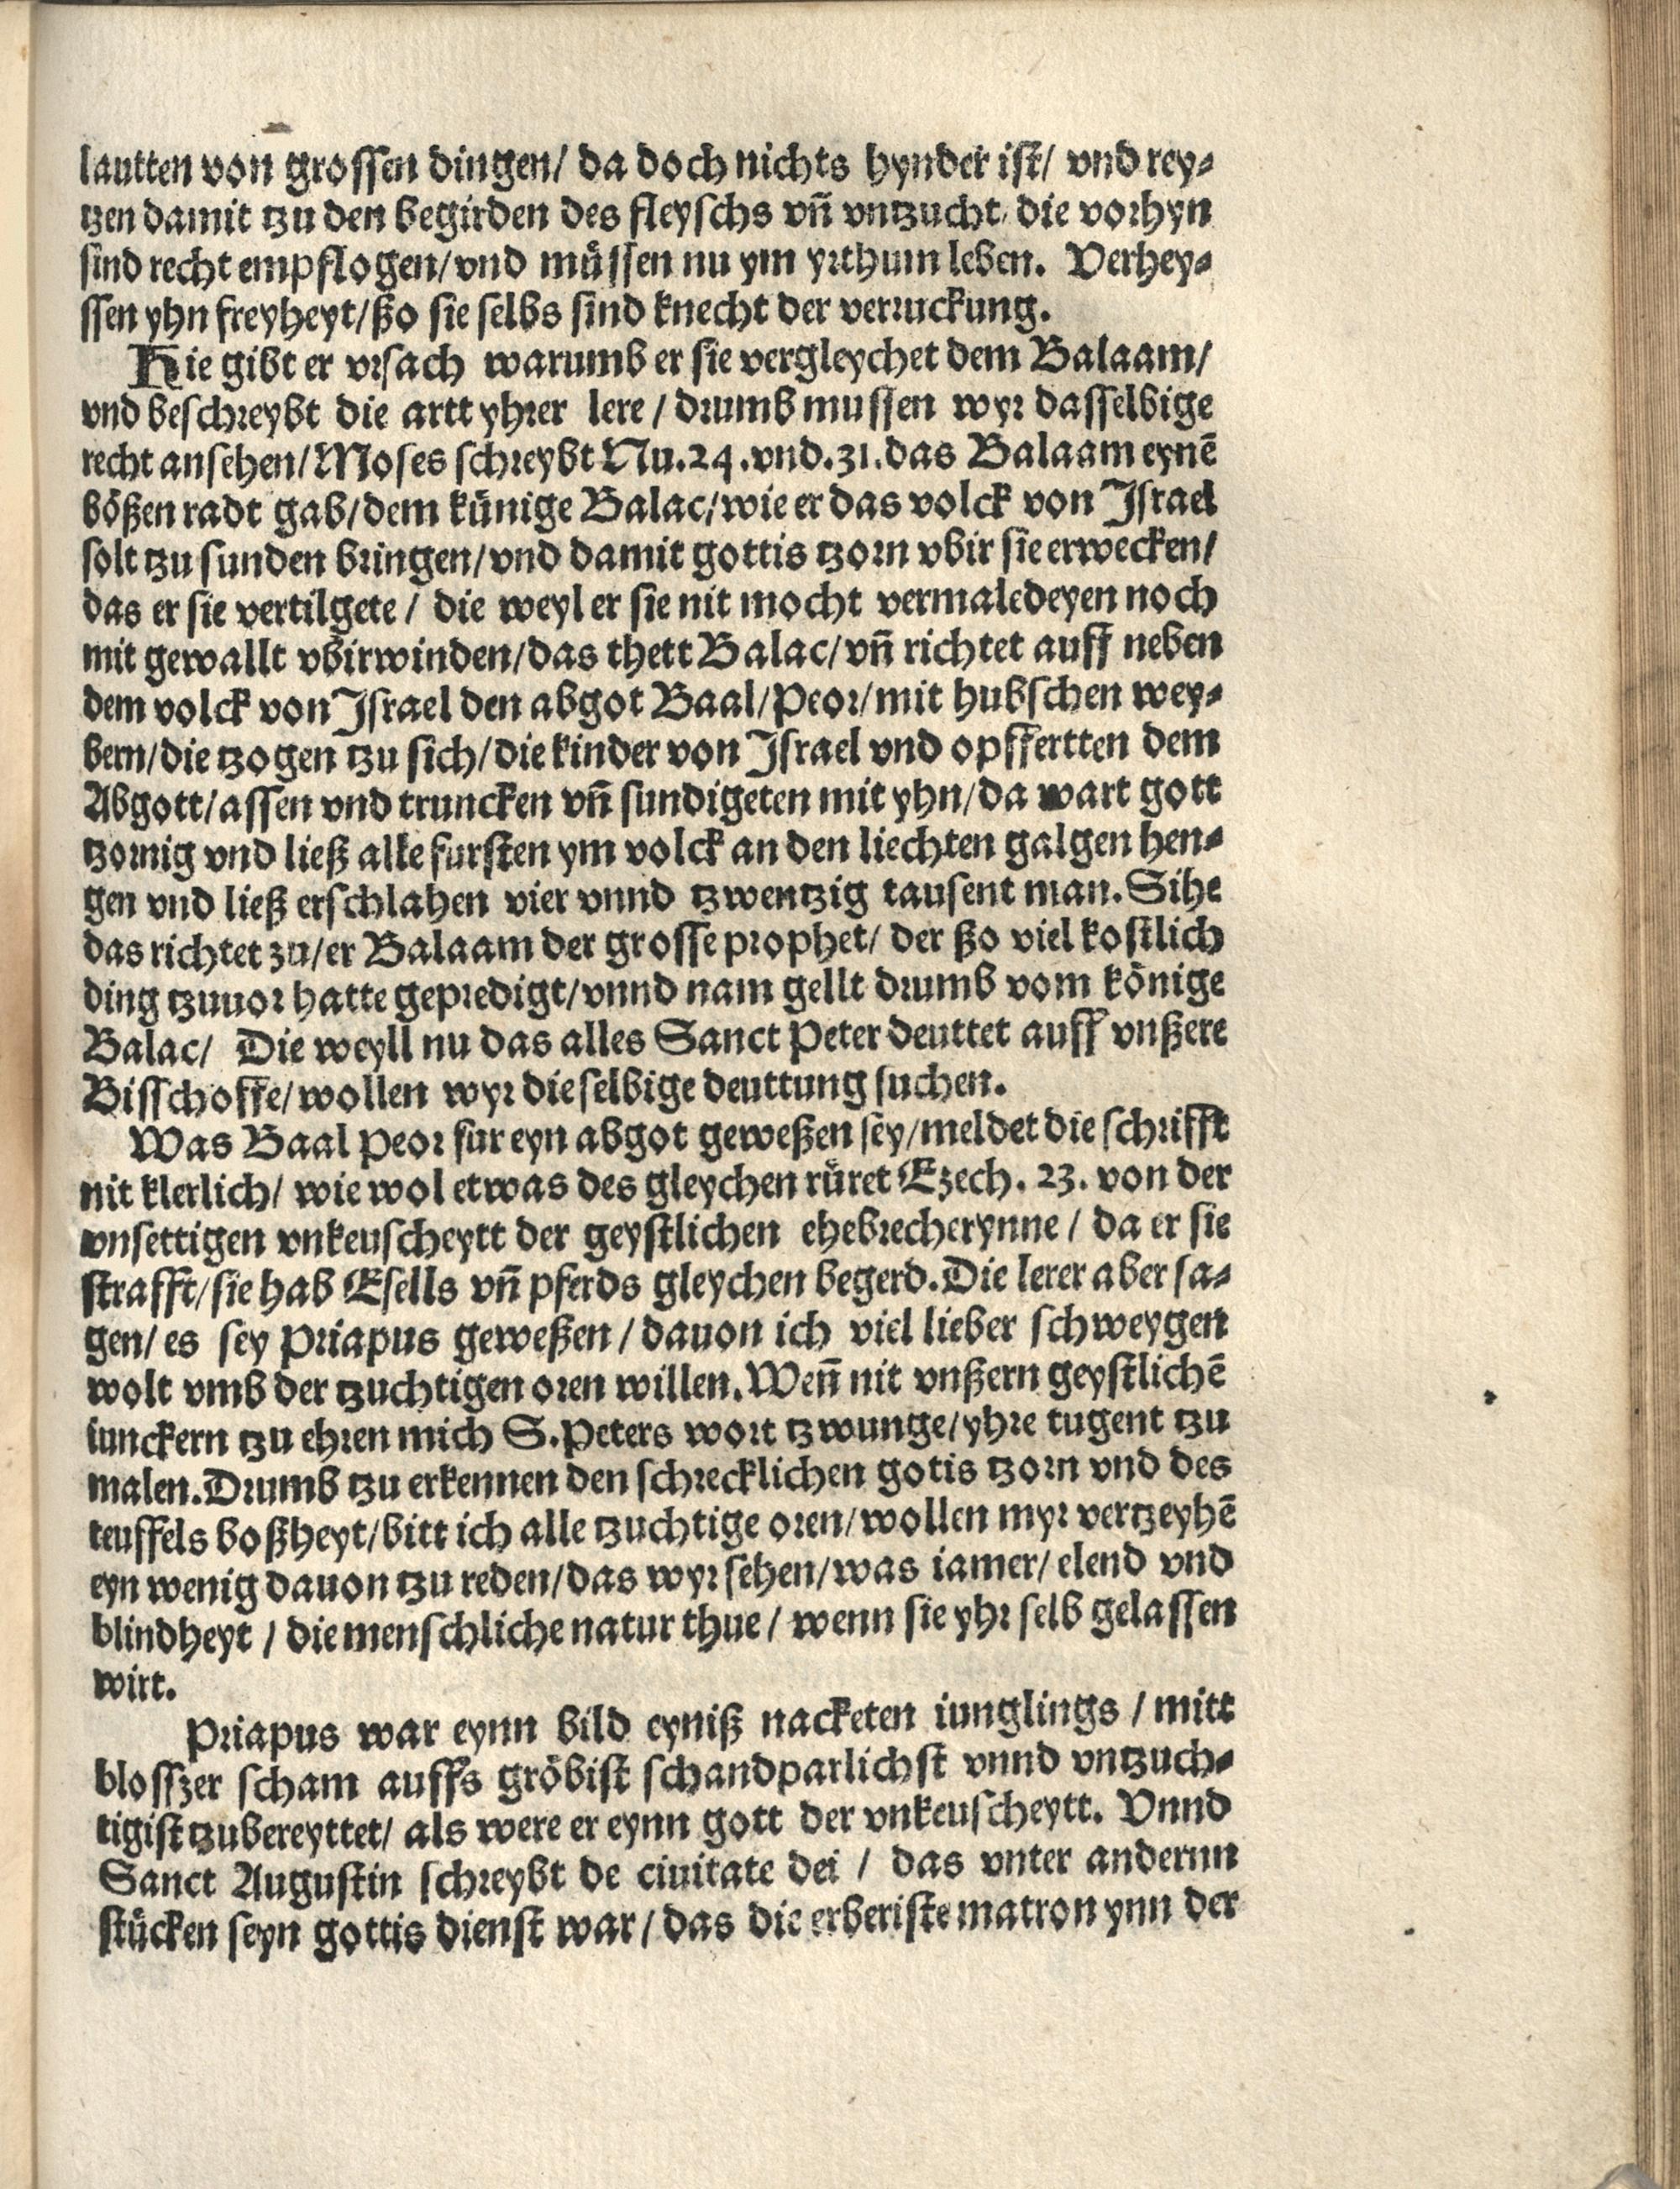 lautten von grossen dingen/ da doch nichts hynder ist/ vnd rey⸗
tzen damit tzu den begirden des fleyschs vn̄ vntzucht/ die vorhyn
sind recht empflogen/ vnd müssen nu ym yrthum leben. Verhey⸗
ssen yhn freyheyt/ ßo sie selbs sind knecht der verruckung.
Hie gibt er vrsach warumb er sie vergleychet dem Balaam/
vnd beschreybt die artt yhrer lere / drumb mussen wyr dasselbige
recht ansehen/ Moses schreybt Nu.24.vnd.31.das Balaam eynē
bößen radt gab/ dem künige Balac/ wie er das volck von Israel
solt tzu sunden bringen/ vnd damit gottis tzorn vbir sie erwecken/
das er sie vertilgete / die weyl er sie nit mocht vermaledeyen noch
mit gewallt vbirwinden/ das thett Balac/ vn̄ richtet auff neben
dem volck von Israel den abgot Baal/ Peor/ mit hubschen wey⸗
bern/ die tzogen tzu sich/ die kinder von Israel vnd opffertten dem
Abgott/ assen vnd truncken vn̄ sundigeten mit yhn/ da wart gott
tzornig vnd ließ alle fursten ym volck an den liechten galgen hen⸗
gen vnd ließ erschlahen vier vnnd tzwentzig tausent man. Sihe
das richtet zu/ er Balaam der grosse prophet/ der ßo viel kostlich
ding tzuuor hatte gepredigt/ vnnd nam gellt drumb vom könige
Balac/ Die weyll nu das alles Sanct Peter deuttet auff vnßere
Bisschoffe/ wollen wyr dieselbige deuttung suchen.
Was Baal Peor fur eyn abgot geweßen sey/ meldet die schrifft
nit klerlich/ wie wol etwas des gleychen rüret Ezech. 23. von der
vnsettigen vnkeuscheytt der geystlichen ehebrecherynne / da er sie
strafft/ sie hab Esells vn̄ pferds gleychen begerd. Die lerer aber sa⸗
gen/ es sey Priapus geweßen / dauon ich viel lieber schweygen
wolt vmb der tzuchtigen oren willen. Wen̄ nit vnßern geystlichē
iunckern tzu ehren mich S. Peters wort tzwunge/ yhre tugent tzu
malen. Drumb tzu erkennen den schrecklichen gotis tzorn vnd des
teuffels boßheyt/ bitt ich alle tzuchtige oren/ wollen myr vertzeyhē
eyn wenig dauon tzu reden/ das wyr sehen/ was iamer/ elend vnd
blindheyt / die menschliche natur thue / wenn sie yhr selb gelassen
wirt.
Priapus war eynn bild eyniß nacketen iunglings / mitt
blosszer scham auffs gröbist schandparlichst vnnd vntzuch⸗
tigist tzubereyttet/ als were er eynn gott der vnkeuscheytt. Vnnd
Sanct Augustin schreybt de ciuitate dei / das vnter andernn
stücken seyn gottis dienst war / das die erberiste matron ynn der